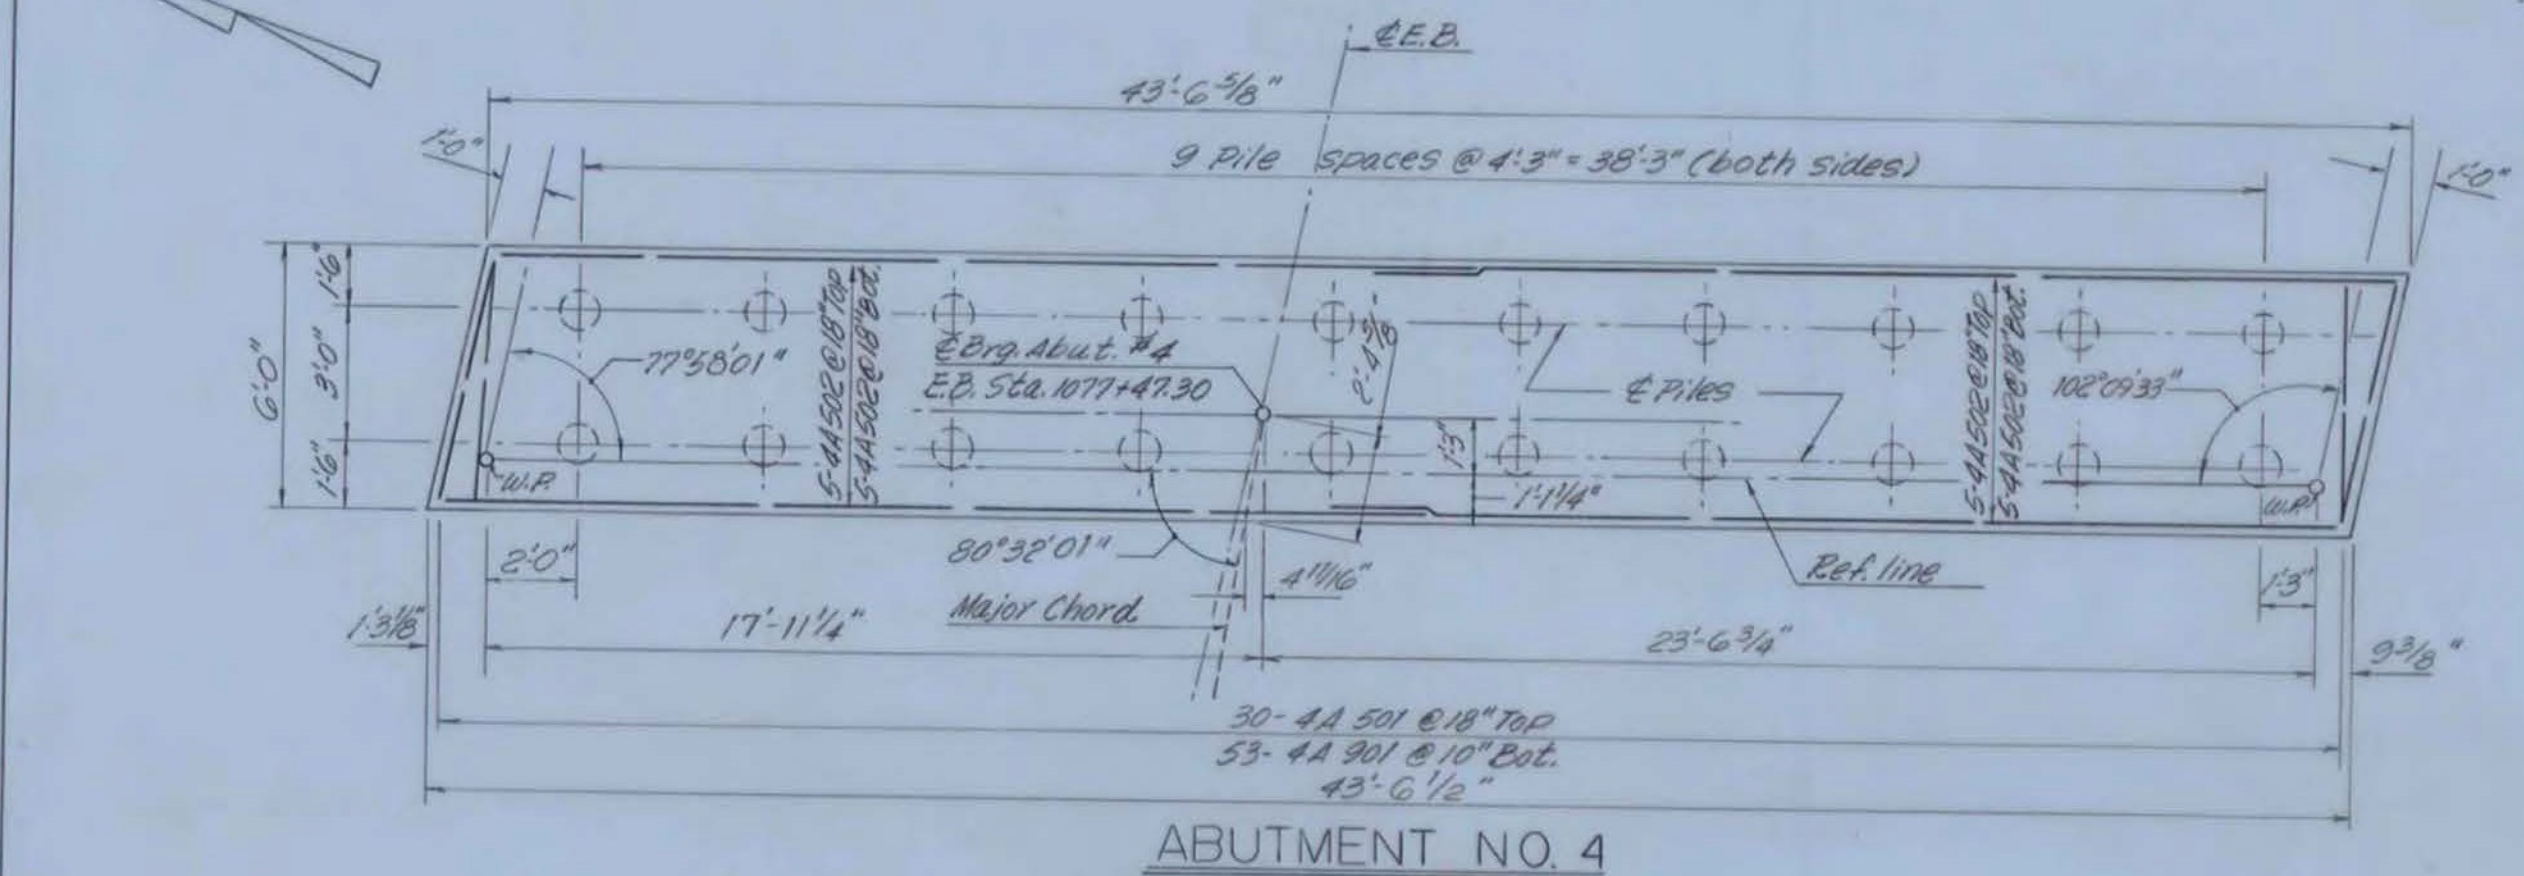 ℄ E.B.
43'-6 5/8"
1'-0"
9 Pile spaces @ 4'-3" = 38'-3" (both sides)
1'-0"
1'-6"
3'-0"
1'-6"
6'-0"
77°58'01"
5-4A502@18"Top
5-4A502@18"Bot.
℄ Brg. Abut. #4
E.B. Sta. 1077+47.30
2'-4 5/8"
℄ Piles
5-4A502@18"Top
5-4A502@18"Bot.
102°09'33"
W.P.
1'-3"
1'-1 1/4"
W.P.
2'-0"
80°32'01"
4 11/16"
Ref. line
1'-3"
1'-3 1/8"
17'-11 1/4"
Major Chord
23'-6 3/4"
9 3/8"
30-4A 501 @ 18" Top
53-4A 901 @ 10" Bot.
43'-6 1/2"
ABUTMENT NO. 4